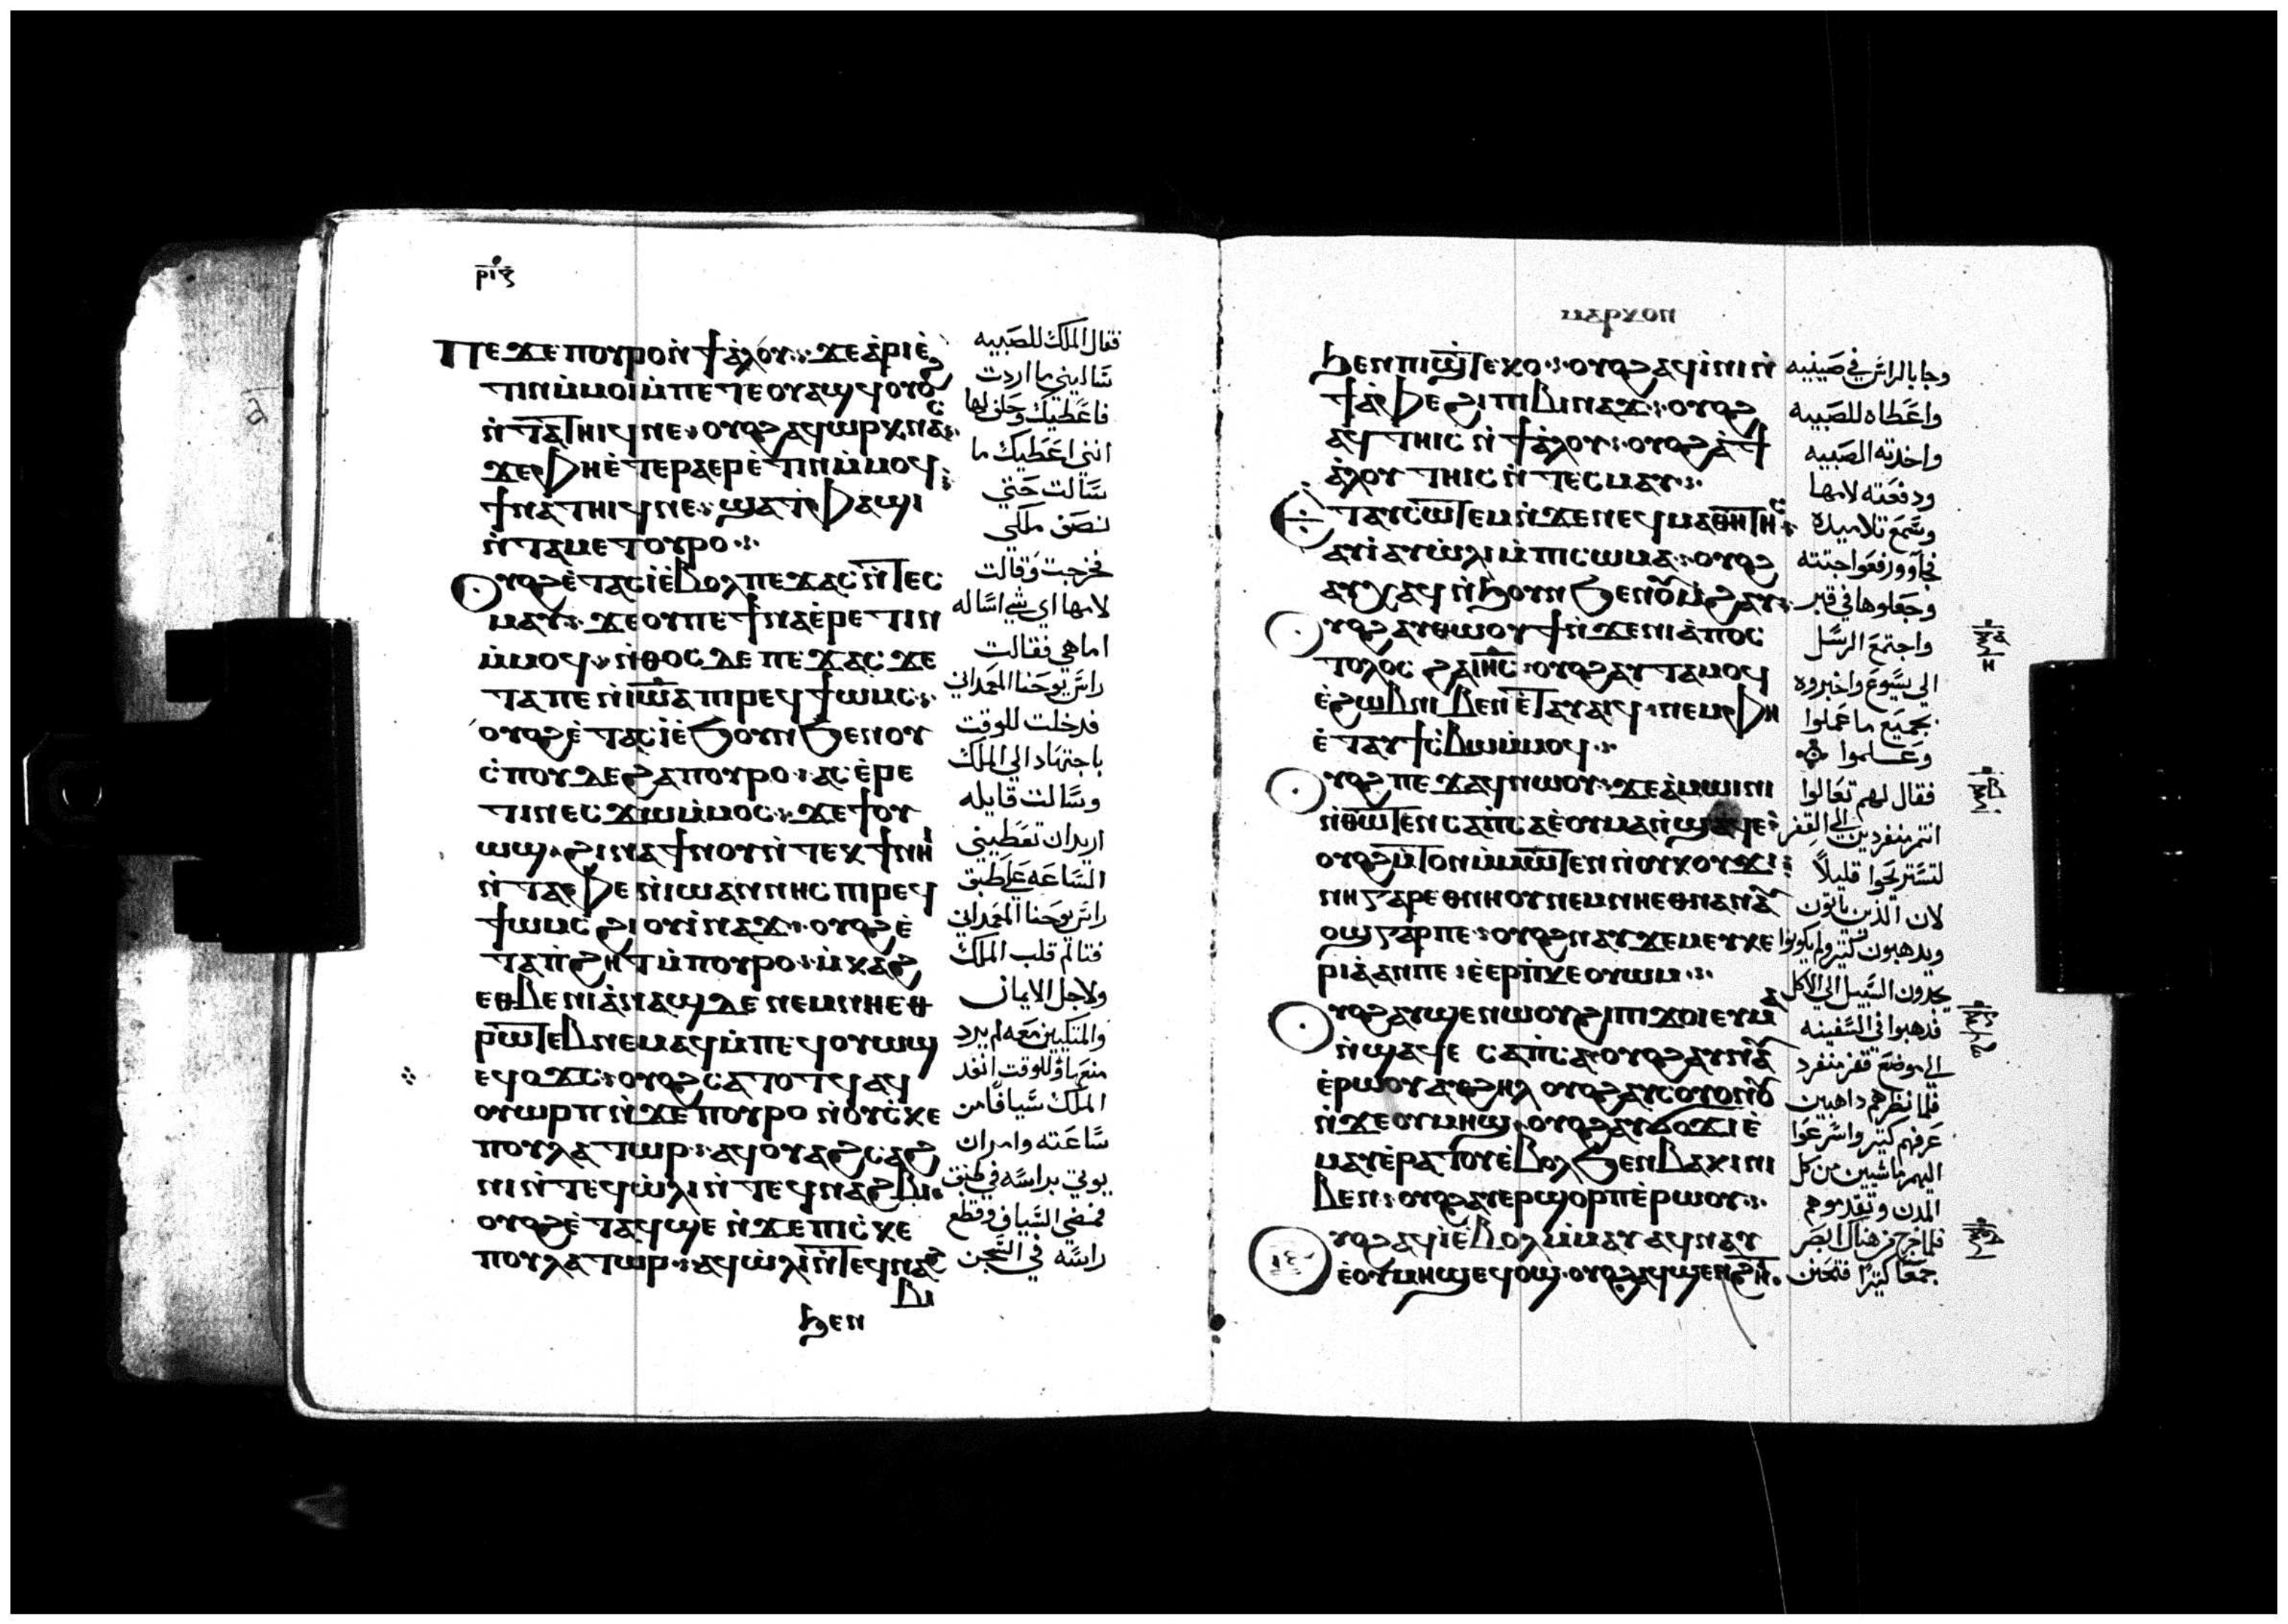 ⲣⲓⲋ
ⲡⲉϫⲉⲡⲟⲩⲣⲟⲛ̀ϯⲁ̀ⲗⲟⲩ: ϫⲉⲁ̀ⲣⲓⲉ̀
ⲧⲓⲛⲙ̀ⲙⲟⲓⲙ̀ⲡⲉⲧⲉⲟⲩⲁϣϥ ⲟⲩⲟϩ
ⲛ̀ⲧⲁⲧⲏⲓϥⲛⲉ: ⲟⲩⲟϩ ⲁϥⲱⲣⲕⲛⲁⲥ:
ϫⲉⲫⲏⲉ̀ⲧⲉⲣⲁⲉⲣⲉ̀ⲧⲓⲛⲙ̀ⲙⲟϥ:
ϯⲛⲁⲧⲏⲓϥⲛⲉ: ϣⲁⲧ̀ⲫⲁϣⲓ
ⲛ̀ⲧⲁⲙⲉⲧⲟⲩⲣⲟ:
ⲟⲩⲟϩⲉ̀ⲧⲁⲥⲓ̀ⲉ̀ⲃⲟⲗ ⲡⲉϫⲁⲥ ⲛ̀ⲧⲉⲥ
ⲙⲁⲩ: ϫⲉⲟⲩⲡⲉϯⲛⲁⲉ̀ⲣⲉⲧⲓⲛ
ⲙ̀ⲙⲟϥ: ⲛ̀ⲑⲟⲥ ⲇⲉ ⲡⲉϫⲁⲥ ϫⲉ
ⲧⲁⲫⲉ ⲛ̀ⲓⲱⲁ ⲡⲓⲣⲉϥϯⲱⲙⲥ:
ⲟⲩⲟϩⲉ̀ⲧⲁⲥⲓ̀ⲉ̀ϧⲟⲩⲛ ϧⲉⲛⲟⲩ
ⲥ̀ⲡⲟⲩⲇⲉ ϩⲁⲡⲟⲩⲣⲟ: ⲁⲥⲉ̀ⲣⲉ
ⲧⲓⲛ ⲉⲥϫⲱⲙ̀ⲙⲟⲥ: ϫⲉϯⲟⲩ
ⲱϣ ϩⲓⲛⲁ ϯⲛⲟⲩ ⲛ̀ⲧⲉⲕϯⲛⲏⲓ
ⲛ̀ⲧⲁ̀ⲫⲉ ⲛ̀ⲓⲱⲁⲛⲛⲏⲥ ⲡⲓⲣⲉϥ
ϯⲱⲙⲥ ϩⲓⲟⲩⲃⲓⲛⲁϫ: ⲟⲩⲟϩⲉ̀
ⲧⲁⲡ̀ϩⲏⲧ ⲙ̀ⲡⲟⲩⲣⲟ: ⲙ̀ⲕⲁϩ
ⲉⲑⲃⲉ ⲛⲓⲁ̀ⲛⲁϣ ⲇⲉ ⲛⲉⲙⲛⲏⲉⲑ
ⲣⲱⲧⲉⲃ ⲛⲉⲙⲁϥ ⲙ̀ⲡⲉϥⲟⲩⲱϣ
ⲉϥⲟϫⲥ: ⲟⲩⲟϩ ⲥⲁⲧⲟⲧϥ ⲁϥ
ⲟⲩⲱⲣⲡ ⲛ̀ϫⲉⲡⲟⲩⲣⲟ ⲛ̀ⲟⲩⲥ̀ⲡⲉ
ⲕⲟⲩⲗⲁⲧⲱⲣ: ⲁϥⲟⲩⲁϩⲥⲁϩ
ⲛⲓ ⲛ̀ⲧⲉϥⲱ̀ⲗⲓ ⲛ̀ⲧⲉϥⲛⲁϩⲃⲓ:
ⲟⲩⲟϩⲉ̀ⲧⲁϥϣⲉ ⲛ̀ϫⲉⲡⲓⲥ̀ⲕⲉ
ⲡⲟⲩⲗⲁⲧⲱⲣ: ⲁϥⲱ̀ⲗⲓ ⲛ̀ⲧⲉϥⲛⲁϩ
ⲃⲓ
ϧⲉⲛ
فقال الملك للصبيه
سالينى ما اردت
فاعطيك وحلف لها
اننى اعطيك ما
سالت حتى
نصف ملكى
فخرجت وقالت
لامها اي شي اساله
اما هي فقالت
راس يوحنا المعمدانى
فدخلت للوقت
باجتهاد الى الملك
وسالت قايله
اريد ان تعطينى
الساعه على طبق
راس يوحنا المعمدانى
فتالم قلب الملك
ولاجل الايمان
والمتكيين معه لم يرد
منعها وللوقت انفد
الملك سيافا من
ساعته وامر ان
يوتى براسه فى طبق
فمضى السياف وقطع
راسه فى السجن
ⲙⲁⲣⲕⲟⲛ
ϧⲉⲛⲡⲓϣ̀ⲧⲉⲕⲟ: ⲟⲩⲟϩ ⲁϥⲓ̀ⲛⲓ ⲛ̀
ⲧⲁ̀ⲫⲉ ϩⲓⲡⲓⲃⲓⲛⲁϫ: ⲟⲩⲟϩ
ⲁϥⲧⲏⲓⲥ ⲛ̀ϯⲁ̀ⲗⲟⲩ: ⲟⲩⲟϩ ⲁ̀ϯ
ⲁ̀ⲗⲟⲩ ⲧⲏⲓⲥ ⲛ̀ⲧⲉⲥⲙⲁⲩ:
ⲉⲧⲁⲩⲥⲱⲧⲉⲙ ⲛ̀ϫⲉⲛⲉϥⲙⲁⲑⲏⲧⲏⲥ:
ⲁⲩⲓ̀ ⲁⲩⲱ̀ⲗⲓ ⲙ̀ⲡⲓⲥⲱⲙⲁ: ⲟⲩⲟϩ
ⲁⲩⲭⲁϥ ⲛ̀ϧⲟⲩⲛ ϧⲉⲛⲟⲩⲙ̀ϩⲁⲩ:
ⲟⲩⲟϩ ⲁⲩⲑⲱⲟⲩϯ ⲛ̀ϫⲉⲛⲓⲁ̀ⲡⲟⲥ
ⲧⲟⲗⲟⲥ ϩⲁⲓⲏⲥ: ⲟⲩⲟϩ ⲁⲩⲧⲁⲙⲟϥ
ⲉ̀ϩⲱⲃ ⲛⲓⲃⲉⲛ ⲉ̀ⲧⲁⲩⲁⲓϥ: ⲛⲉⲙⲫⲏ
ⲉ̀ⲧⲁⲩϯⲥ̀ⲃⲱ ⲙ̀ⲙⲟϥ:
ⲟⲩⲟϩ ⲡⲉϫⲁϥ ⲛⲱⲟⲩ: ϫⲉⲁ̀ⲙⲱⲓⲛⲓ
ⲛ̀ⲑⲱⲧⲉⲛ ⲥⲁⲡ̀ⲥⲁ ⲉ̀ⲟⲩⲙⲁ ⲛ̀ϣⲁϥⲉ:
ⲟⲩⲟϩ ⲙ̀ⲧⲟⲛ ⲙ̀ⲙⲱⲧⲉⲛ ⲛ̀ⲟⲩⲕⲟⲩϫⲓ:
ⲛⲏ ⲅⲁⲣ ⲉⲑⲛⲏⲟⲩ ⲛⲉⲙⲛⲏⲉⲑⲛⲁ ⲛⲁⲩ
ⲟϣ ⲅⲁⲣⲡⲉ: ⲟⲩⲟϩ ⲛⲁⲩϫⲉⲙⲉⲩⲕⲉ
ⲣⲓⲁ̀ ⲁⲛⲡⲉ: ⲉ̀ⲉⲣⲡ̀ⲕⲉⲟⲩⲱⲙ:
ⲟⲩⲟϩ ⲁⲩϣⲉⲛⲱⲟⲩ ϩⲓⲡⲓϫⲟⲓ ⲉⲩⲙⲁ
ⲛ̀ϣⲁϥⲉ ⲥⲁⲡ̀ⲥⲁ: ⲟⲩⲟϩ ⲁⲩⲛⲁⲩ
ⲉ̀ⲣⲱⲟⲩ ⲁⲩϩⲏⲗ ⲟⲩⲟϩ ⲁⲩⲥⲟⲩⲟⲛⲟⲩ
ⲛ̀ϫⲉⲟⲩⲙⲏϣ: ⲟⲩⲟϩ ⲁⲩϭⲟϫⲓ ⲉ̀
ⲙⲁⲩ ⲉ̀ⲣⲁⲧⲟⲩ ⲉ̀ⲃⲟⲗ ϧⲉⲛⲃⲁⲕⲓ ⲛⲓ
ⲃⲉⲛ: ⲟⲩⲟϩ ⲁⲩⲉⲣϣⲟⲣⲡ ⲉ̀ⲣⲱⲟⲩ:
ⲟⲩⲟϩ ⲁϥⲓ̀ ⲉ̀ⲃⲟⲗ ⲙ̀ⲙⲁⲩ ⲁϥⲛⲁⲩ
ⲉ̀ⲟⲩⲙⲏϣ ⲉϥⲟϣ: ⲟⲩⲟϩ ⲁϥϣⲉⲛϩⲏⲧ:
وجا بالراس فى صينيه
واعطاه للصبيه
واخدته الصبيه
ودفعته لامها
وسمع تلاميده
فجآوو رفعوا جتته
وجعلوها فى قبر
واجتمع الرسل
الى يسوع واخبروه
بجميع ما عملوا
وعلموا
فقال لهم تعالوا
انتم منفردين الى القفر
لتستريحوا قليلاً
لان الدين ياتون
ويدهبون كتير ولم يكونوا
يجدون السبيل الى الاكل
فدهبوا فى السفينه
الى موضع قفر منفرد
فلما نظرهم داهبين
عرفهم كتير واسرعوا
اليهم ماشيين من كل
المدن وتقدموهم
فلما خرج من هناك ابصر
جمعا كتيرا فتحنن